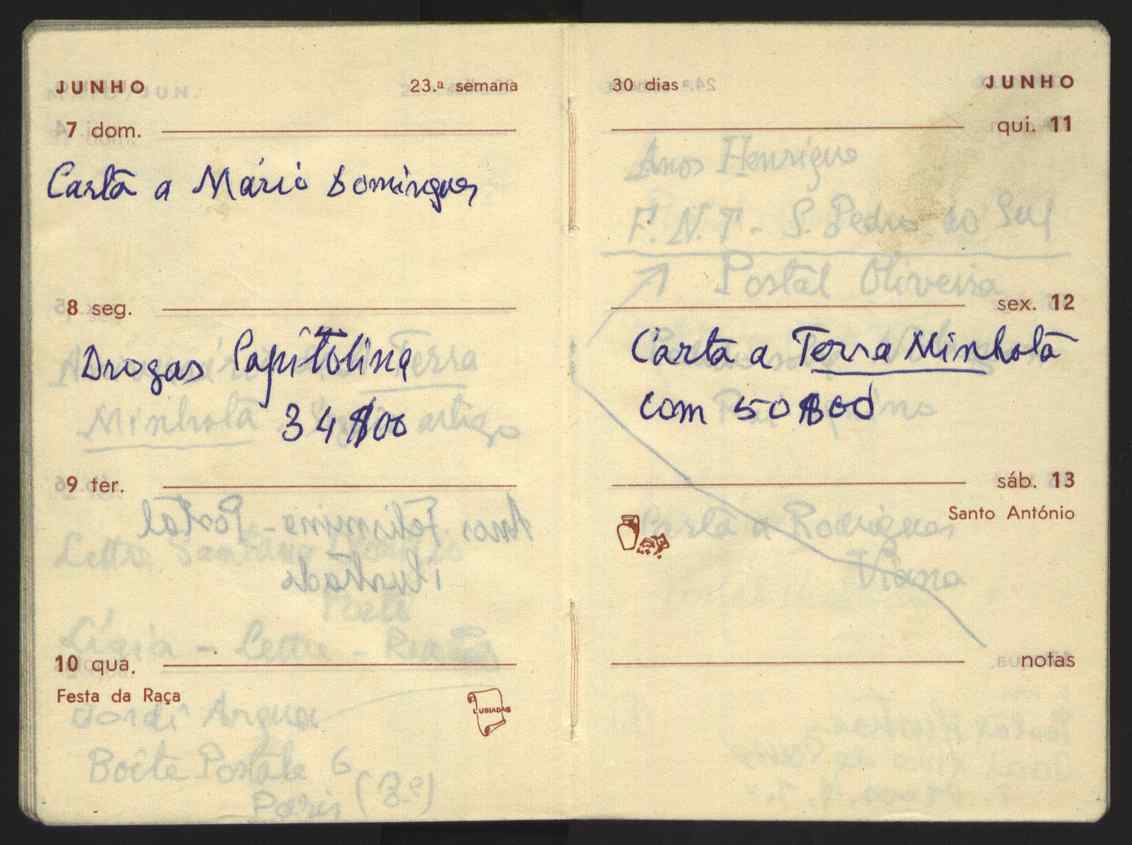 JUNHO 23.ª semana
7 dom.
Carta a Mário Domingues
8 seg.
Drogas Capitolina
34$00
9 ter.
10 qua.
Festa da Raça
LUSIADAS
30 dias JUNHO
qui. 11
Anos Henrique
F.N.T - S. Pedro do Sul
Postal Oliveira
sex. 12
Carta a Terra Minhota
com 50$00
sáb. 13
Santo António
Carta a Rodrigues
Viana
notas
Terra
Minhota artigo
Anos Felismino - Postal
ilustrado
Boîte Postale 6
Paris (3.e)